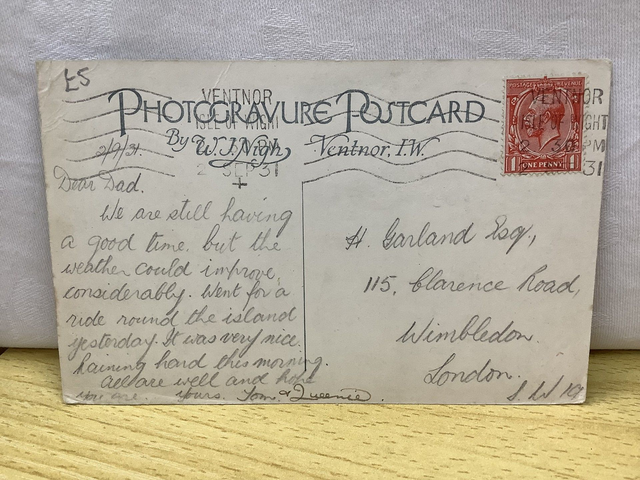 £5
PHOTOGRAVURE POSTCARD
By W. J. Nigh, Ventnor, I.W.
VENTNOR
ISLE OF WIGHT
2 SEP 31
VENTNOR
ISLE OF WIGHT
2 SEP 31
POSTAGE REVENUE
1 ONE PENNY 1
2/9/31.
Dear Dad.
We are still having
a good time but the
weather could improve
considerably. Went for a
ride round the island
yesterday. It was very nice.
Raining hard this morning.
All are well and hope
you are. Yours. Tom & Queenie.
H. Garland Esq.,
115, Clarence Road,
Wimbledon.
London.
S.W.19